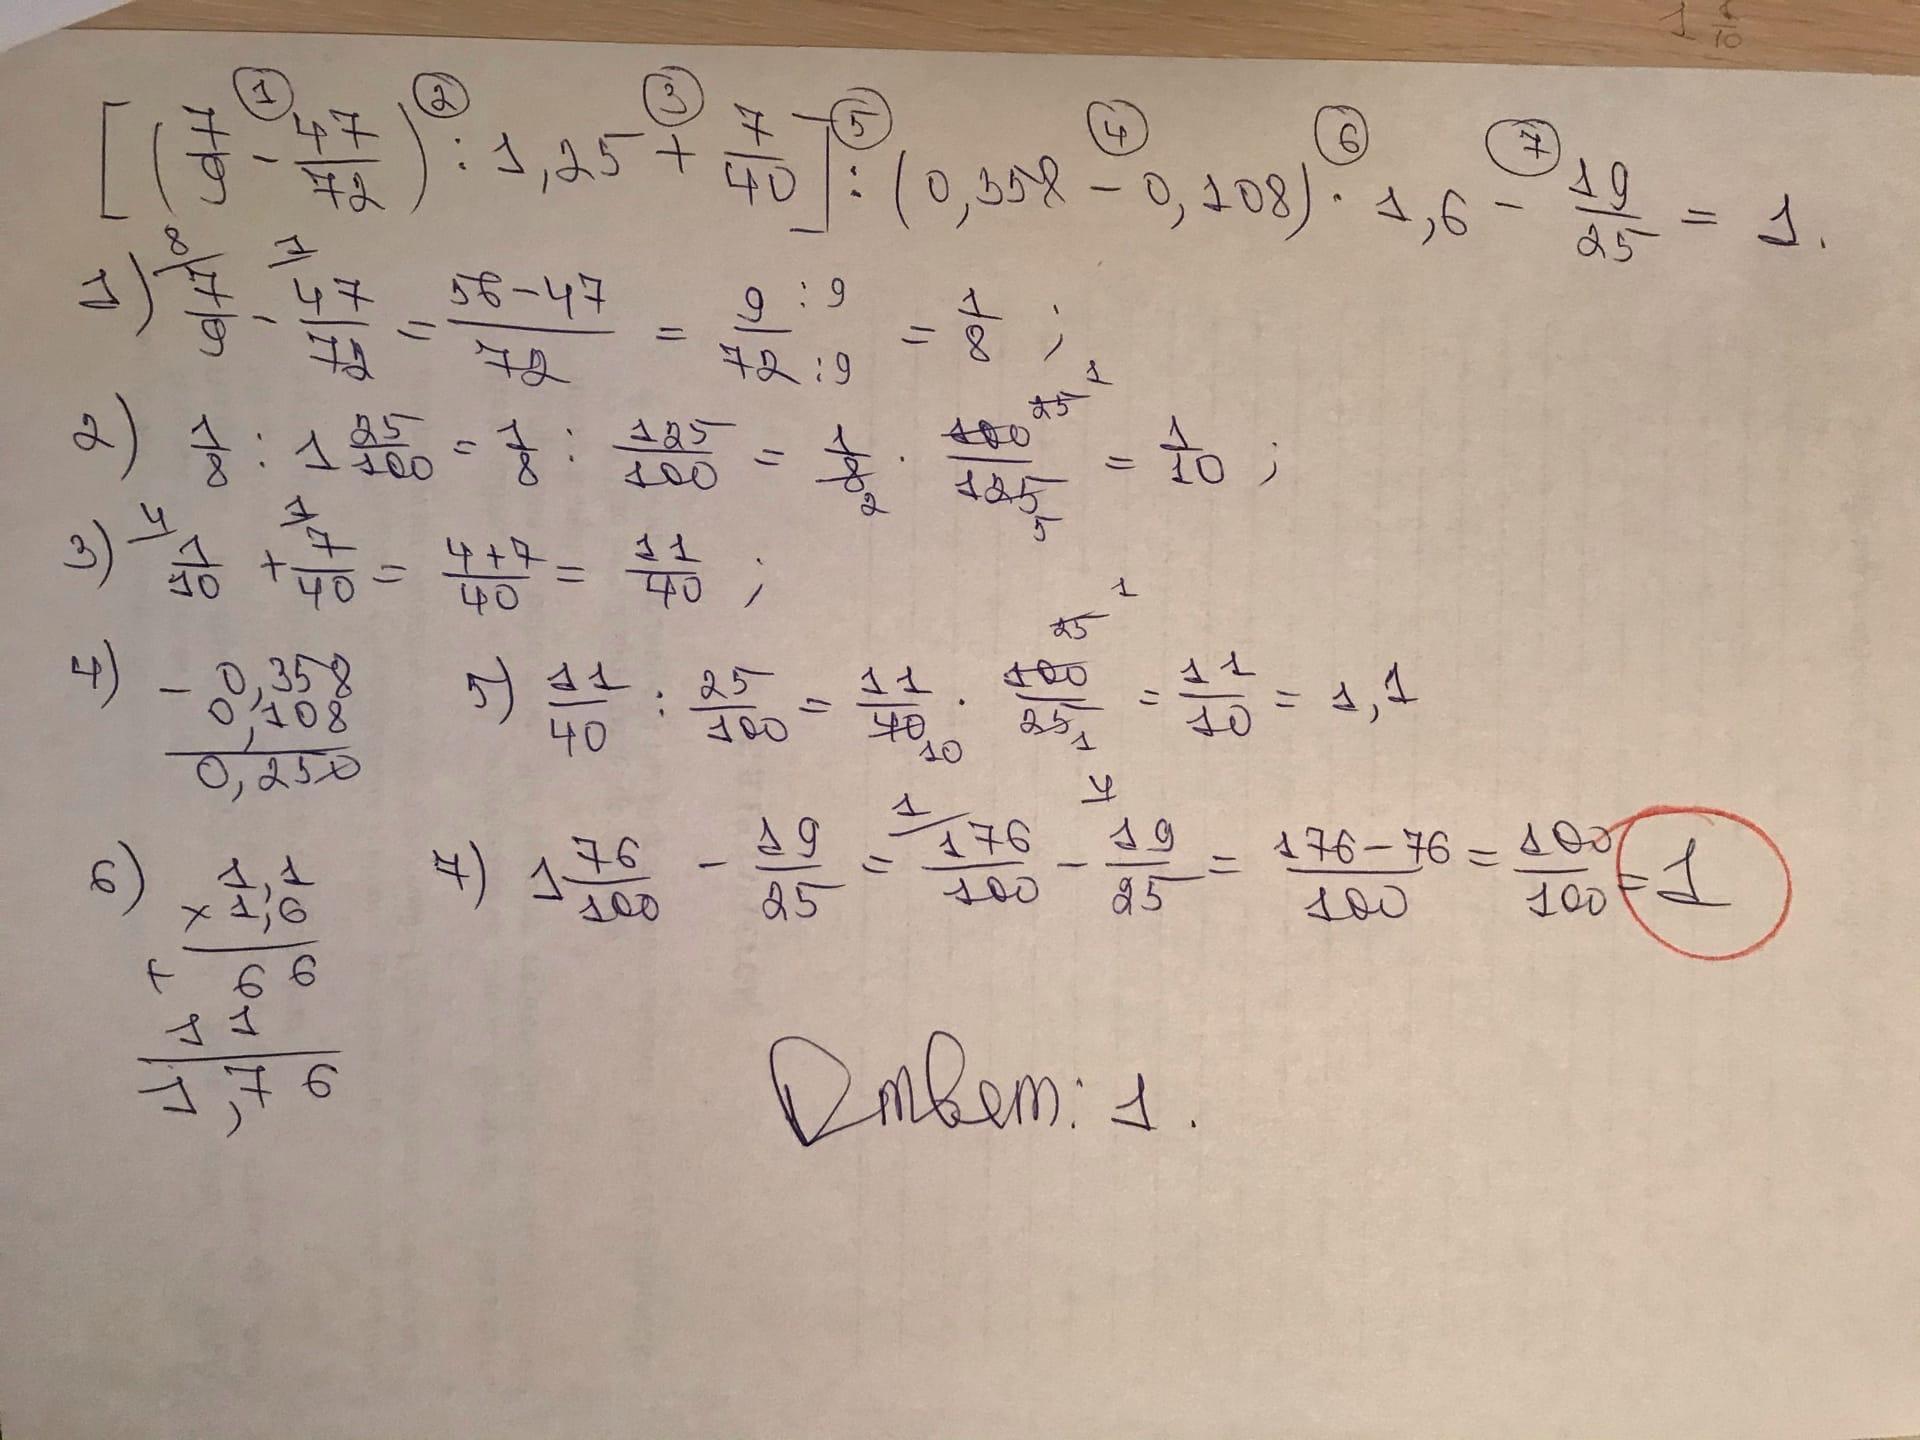 1 6/10
[(7/9 - 47/72) : 1,25 + 7/40] : (0,358 - 0,108) · 1,6 - 19/25 = 1.
① ② ③ ⑤ ④ ⑥ ⑦
1) 7/9 (8 - 47/72 (1 = 56-47/72 = 9:9/72:9 = 1/8 ;
2) 1/8 : 1 25/100 = 1/8 : 125/100 = 1/8 2 · 100 25 1/125 5 = 1/10 ;
3) 4 1/10 + 1 7/40 = 4+7/40 = 11/40 ;
4) - 0,358
0,108
0,250
5) 11/40 : 25/100 = 11/40 10 · 100 25 1/25 1 = 11/10 = 1,1
6) 1,1
× 1,6
+ 6 6
1 1
1,7 6
7) 1 76/100 - 19/25 = 1 176/100 - 4 19/25 = 176-76/100 = 100/100 = 1
Ответ: 1.